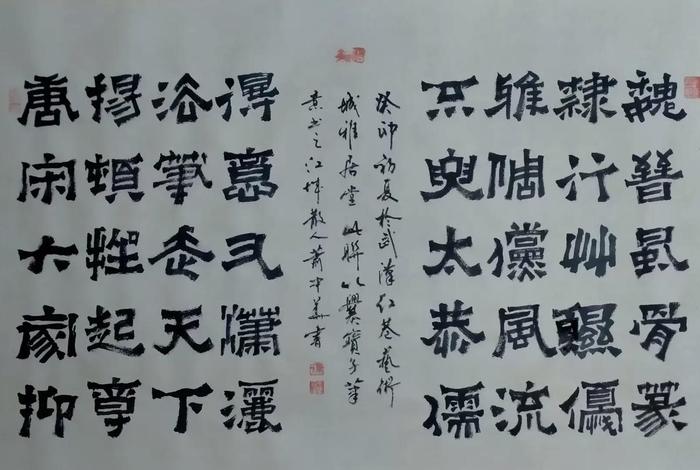 魏晉風骨篆
隸行艸優
雖倜儻風流
只臾太恭儒
癸卯初夏於武漢红巷藝術
城雅居堂此聯以爨寶子筆
意书之江城散人蕭書
得意又瀟灑
筆走天下
揚頓挫起尊
唐宋大家抑